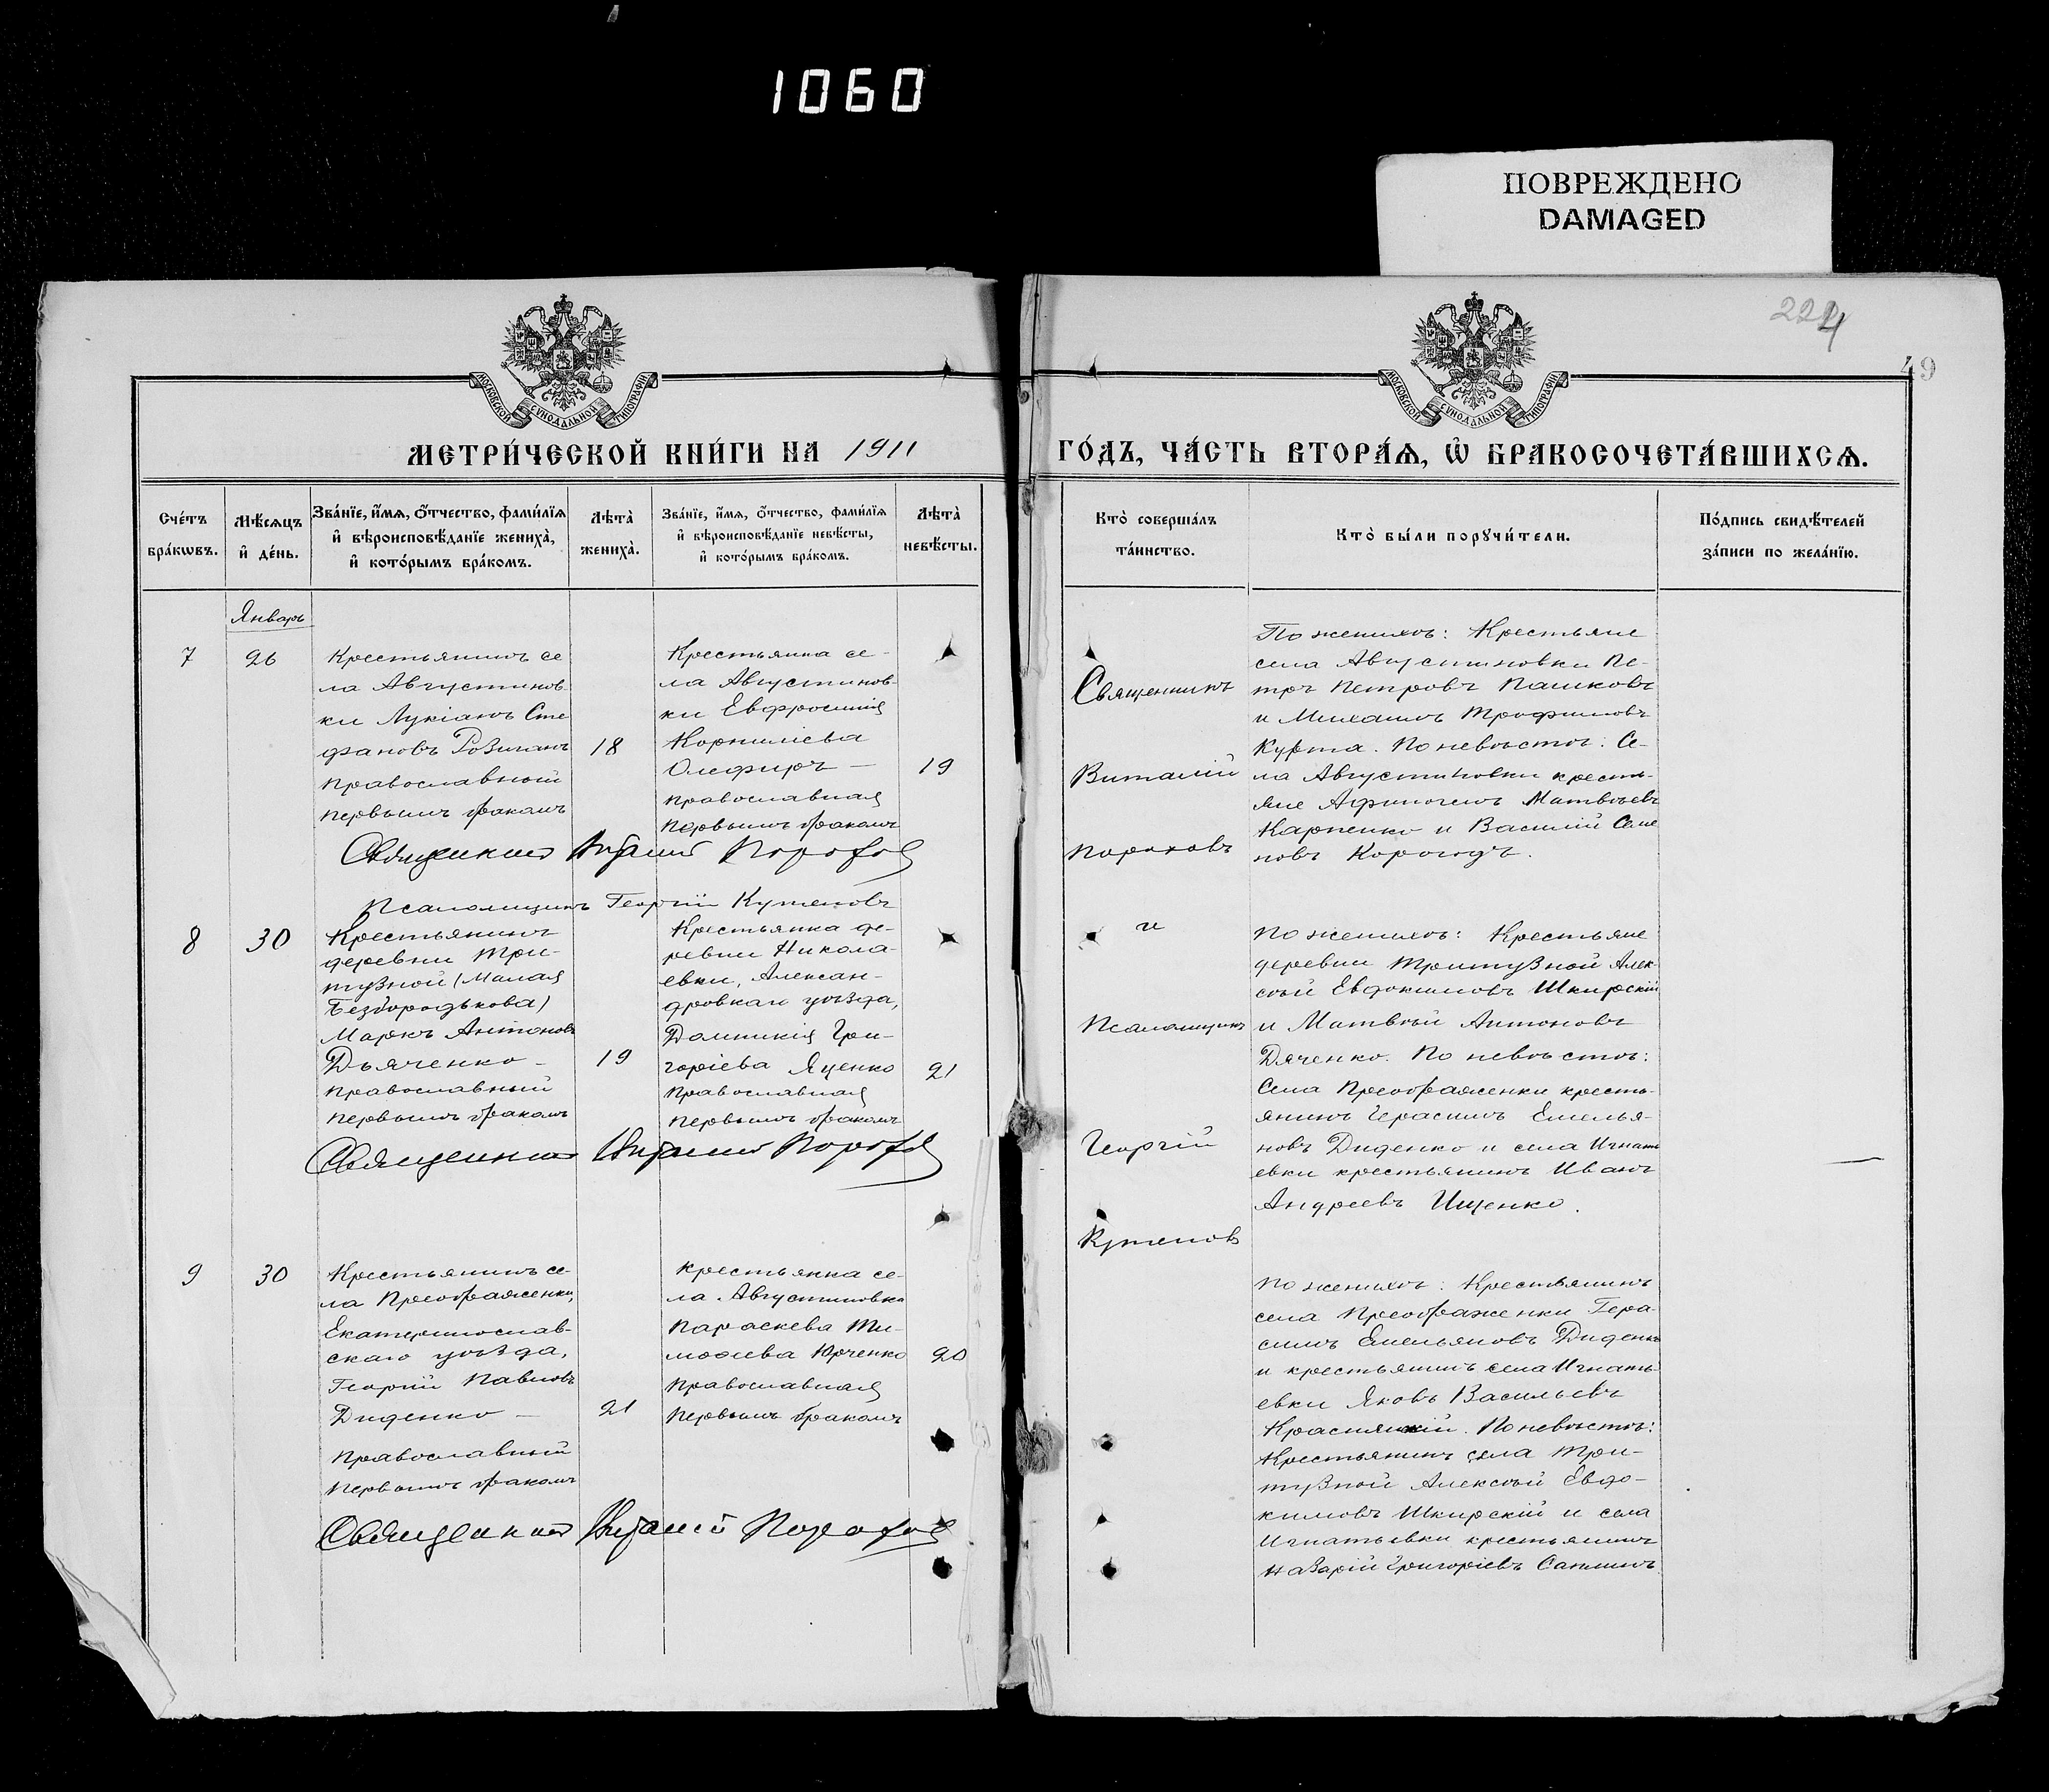 1060
ПОВРЕЖДЕНО
DAMAGED
224
49
МОСКОВСКОЙ СѴНОДАЛЬНОЙ ТИПОГРАФІИ
МОСКОВСКОЙ СѴНОДАЛЬНОЙ ТИПОГРАФІИ
МЕТРИ́ЧЕСКОЙ КНИ́ГИ НА 1911
ГО́ДЪ, ЧА́СТЬ ВТОРА́Ѧ, Ѡ҆ БРАКОСОЧЕТА́ВШИХСѦ.
Сче́тъ
бра́кѡвъ.
Мѣ́сяцъ
и҆ де́нь.
Зва́нїе, и҆́мѧ, ѻ҆́тчество, фами́лїѧ
и҆ вѣроисповѣ́данїе жениха̀,
и҆ кото́рымъ бра́комъ.
Лѣта̀
жениха̀.
Зва́нїе, и҆́мѧ, ѻ҆́тчество, фами́лїѧ
и҆ вѣроисповѣ́данїе невѣ́сты,
и҆ кото́рымъ бра́комъ.
Лѣта̀
невѣ́сты.
Кто̀ соверша́лъ
та́инство.
Кто̀ бы́ли порꙋчи́тели.
По́дпись свидѣ́телей
за́писи по жела́нїю.
Январь
7
26
Крестьянинъ се
ла Августинов-
ки Лукіанъ Сте
фановъ Розиганъ
православный
первымъ бракомъ
18
Крестьянка се-
ла Августинов-
ки Евфросинія
Корниліева
Олефиръ —
православная
первымъ бракомъ
19
Священникъ Виталий Порохов
Псаломщикъ Георгій Кутеповъ
Священникъ
Виталій
Пороховъ
По женихѣ: Крестьяне
села Августиновки Пе-
тръ Петровъ Пашковъ
и Михаилъ Трофимовъ
Курта. По невѣстѣ: Се-
ла Августиновки кресть-
яне Афиногенъ Матвѣевъ
Карпенко и Василій Семе
новъ Корогодъ.
8
30
Крестьянинъ
деревни Три-
тузной (Малая
Безбородькова)
Маркъ Антоновъ
Дьяченко —
православный
первымъ бракомъ
19
Крестьянка де-
ревни Никола-
евки, Алексан-
дровскаго уѣзда,
Домникія Гри-
горіева Яценко
православная
первымъ бракомъ
21
Священникъ Виталий Порохов
и
Псаломщикъ
Георгій
Кутеповъ
По женихѣ: Крестьяне
деревни Тритузной Алек-
сѣй Евдокимовъ Шкирскій
и Матвѣй Антоновъ
Дяченко. По невѣстѣ:
Села Преображенки кресть-
янинъ Герасимъ Емелья-
новъ Диденко и села Игнать
евки крестьянинъ Иванъ
Андреевъ Ищенко.
9
30
Крестьянинъ се-
ла Преображенки,
Екатеринослав-
скаго уѣзда,
Георгій Павловъ
Диденко —
православный
первымъ бракомъ
21
крестьянка се-
ла Августиновки
Параскева Ти-
моѳеева Юрченко
православная
первымъ бракомъ
20
Священникъ Виталий Порохов
По женихѣ: Крестьянинъ
села Преображенки Гера-
симъ Емельяновъ Диденко
и крестьянинъ села Игнать-
евки Яковъ Васильевъ
По невѣстѣ:
Крестьянинъ села Три-
тузной Алексѣй Евдо-
кимовъ Шкирскій и села
Игнатьевки крестьянинъ
Назарій Григоріевъ